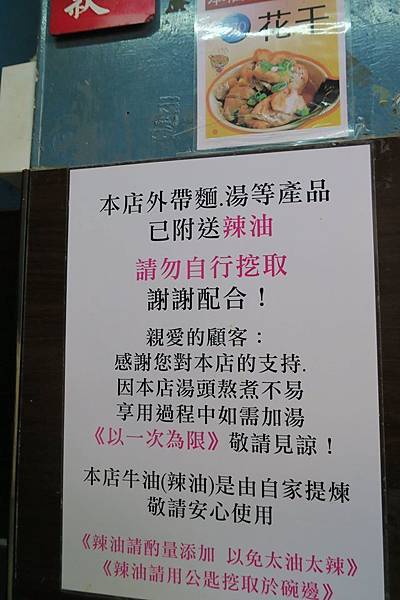 花干
本店外帶麵.湯等產品
已附送辣油
請勿自行挖取
謝謝配合！
親愛的顧客：
感謝您對本店的支持.
因本店湯頭熬煮不易
享用過程中如需加湯
《以一次為限》敬請見諒！
本店牛油(辣油)是由自家提煉
敬請安心使用
《辣油請酌量添加 以免太油太辣》
《辣油請用公匙挖取於碗邊》